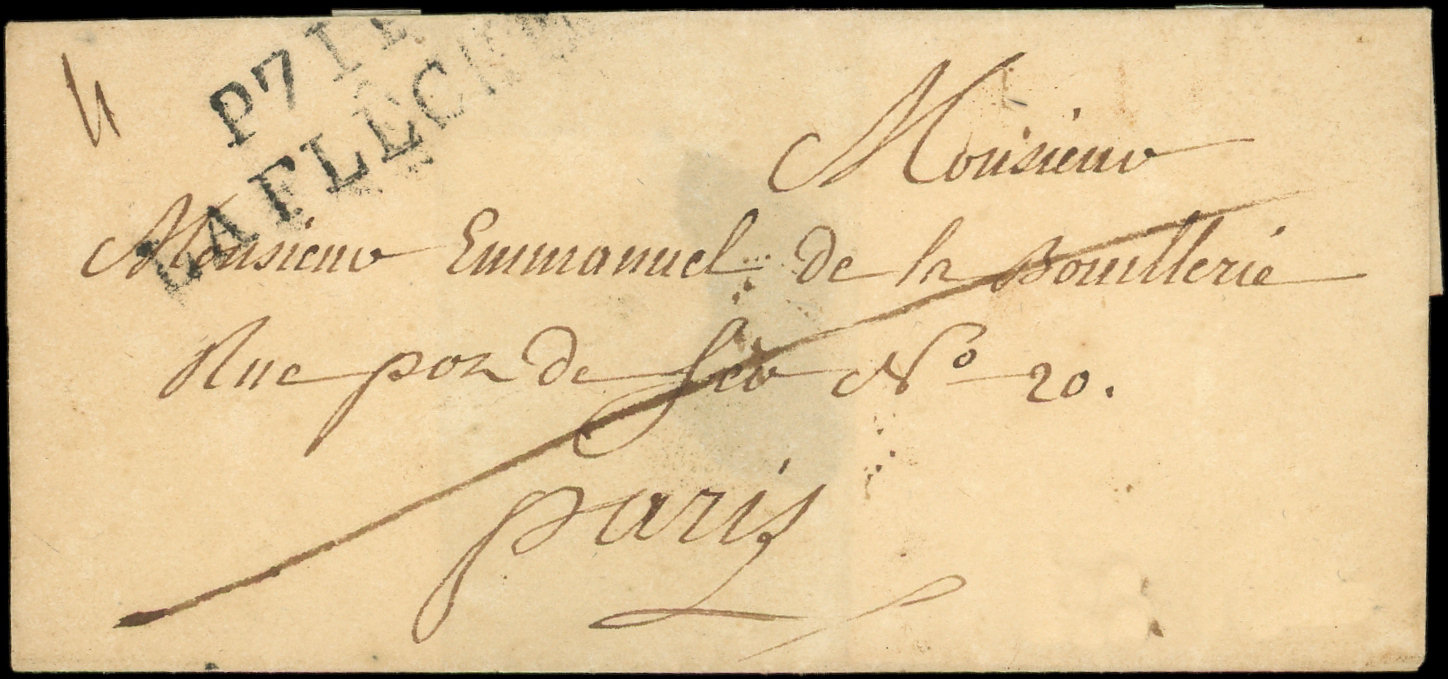 P71P
LA FLECHE
Monsieur
Monsieur Emmanuel de la Bouillerie
Rue poz de No 20.
paris